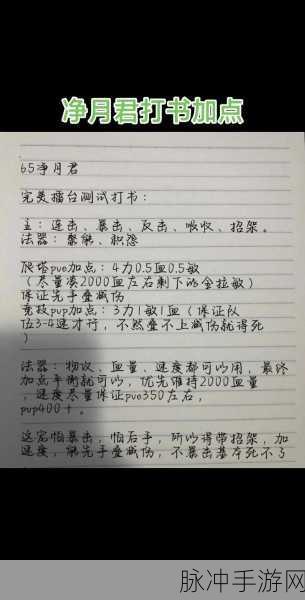 净月君打书加点
65净月君
完美擂台测试打书：
主：连击、暴击、反击、吸收、招架。
法器：聚能、积怨
爬塔pve加点：4力0.5血0.5敏
（尽量凑2000血左右剩下的全拉敏）
保证先手叠减伤
竞技pvp加点：3力1敏1血（保证队
伍3-4速才行，不然叠不上减伤就得死
）
法器：物攻、血量、速度都可以用，最终
加点平衡就可以，优先维持2000血量
，速度尽量保证pve350左右，
pvp400+。
这宠怕暴击，怕后手，所以得带招架，加
速度，能先手叠减伤，不暴击基本死不了
脉冲手游网